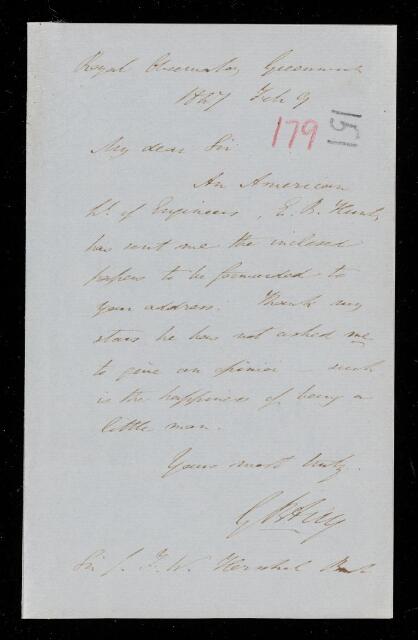 Royal Observatory Greenwich
1847 Feb 9
179
151
My dear Sir
An American
Lt. of Engineers, E. B. Hunt,
has sent me the inclosed
papers to be forwarded to
your address. Thank my
stars he has not asked me
to give an opinion – such
is the happiness of being a
little man.
Yours most truly.
G B Airy
Sir J. F. W. Herschel Bart